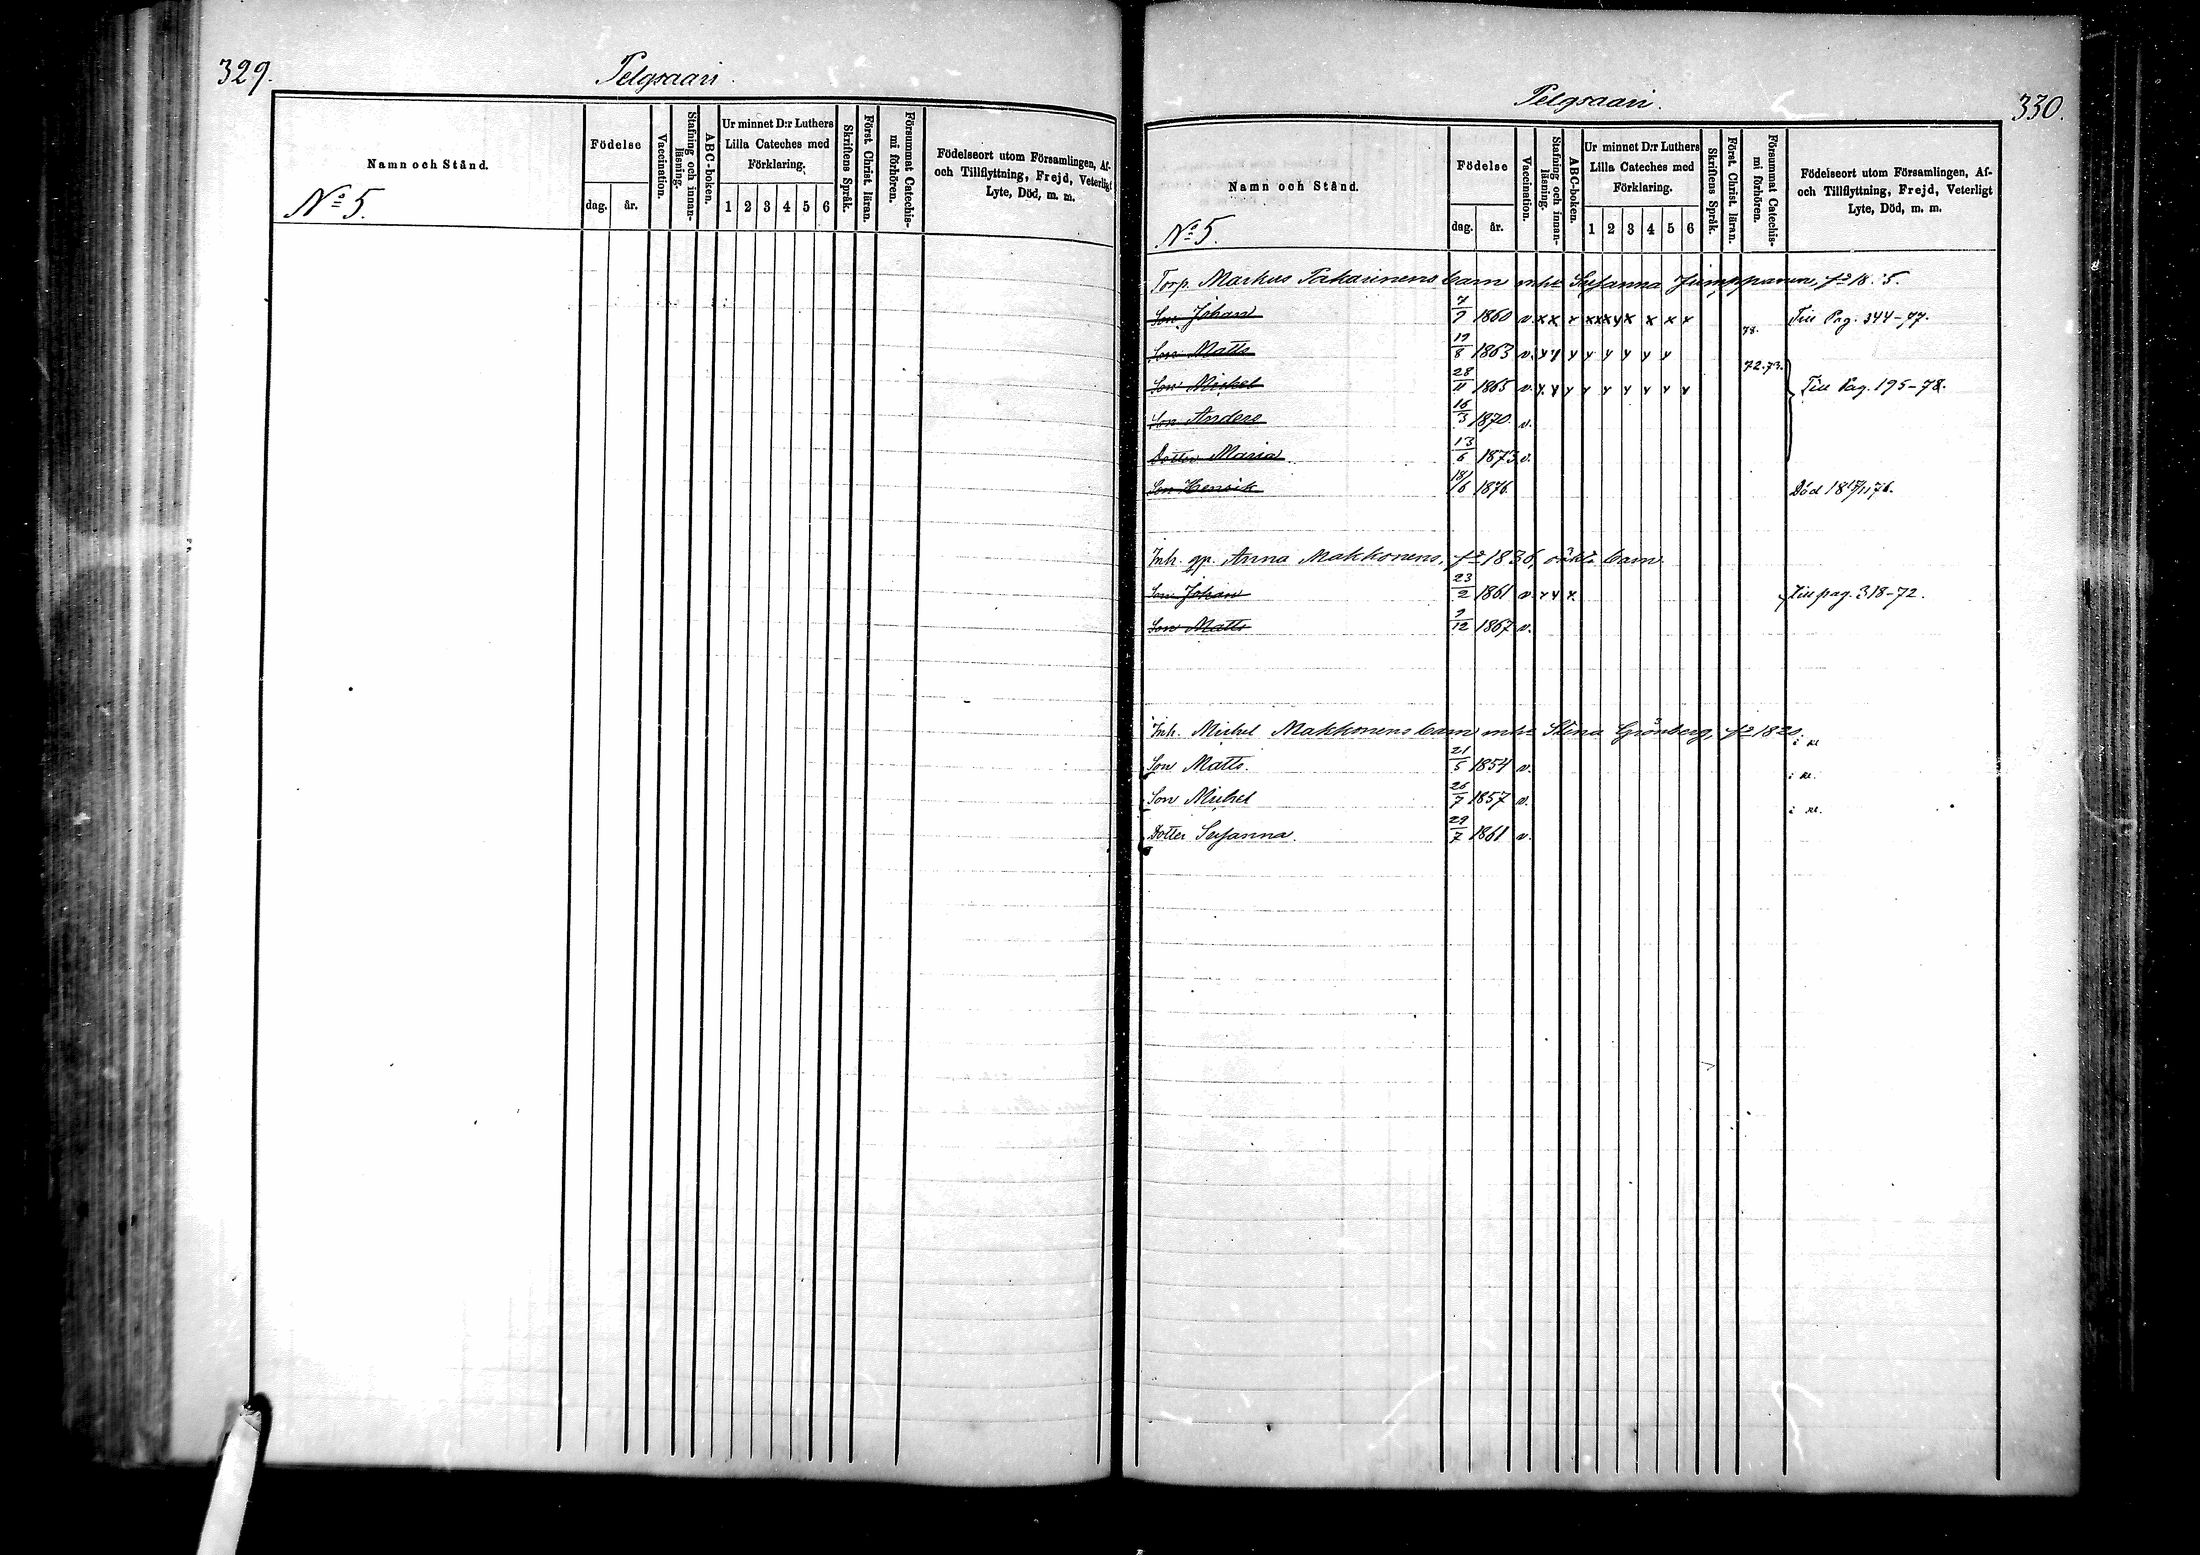 329.
Pelgsaari.
Namn och Stånd.
Födelse
dag.
år.
Vaccination.
Stafning och innanläsning.
ABC-boken.
Ur minnet D:r Luthers
Lilla Cateches med
Förklaring.
1 2 3 4 5 6
Skriftens Språk.
Först. Christ. läran.
Försummat Catechismi förhören.
Födelseort utom Församlingen, Af-
och Tillflyttning, Frejd, Veterligt
Lyte, Död, m. m.
No 5.
Pelgsaari.
330.
Namn och Stånd.
Födelse
dag.
år.
Vaccination.
Stafning och innanläsning.
ABC-boken.
Ur minnet D:r Luthers
Lilla Cateches med
Förklaring.
1 2 3 4 5 6
Skriftens Språk.
Först. Christ. läran.
Försummat Catechismi förhören.
Födelseort utom Församlingen, Af-
och Tillflyttning, Frejd, Veterligt
Lyte, Död, m. m.
No 5.
Torp. Markus Pakarinens barn m. h. Susanna
Son Johan 1860 v. x x x x x x y x x x x Till Pag. 344-77.
Son Matts 19/8 1863 v. y y y y y y y y 78.
Son Michel 28/11 1865 v. y y y y y y y y y 72.73. Till Pag. 195-78.
Son Anders 16/3 1870 v.
Dotter Maria 13/6 1873 v.
Son Henrik 18/6 1876. Död 76.
Inh. qp. Anna Makkonens, fd 1836, oäkta barn
Son Johan 23/2 1861 v. y y y. Till pag. 318-72.
Son Matts 2/12 1867 v.
Inh. Michel Makkonens barn m. h. Stina Grönberg, fd 1820.
Son Matts. 21/5 1854 v.
Son Michel 26/7 1857 v.
Dotter Susanna. 29/7 1861 v.